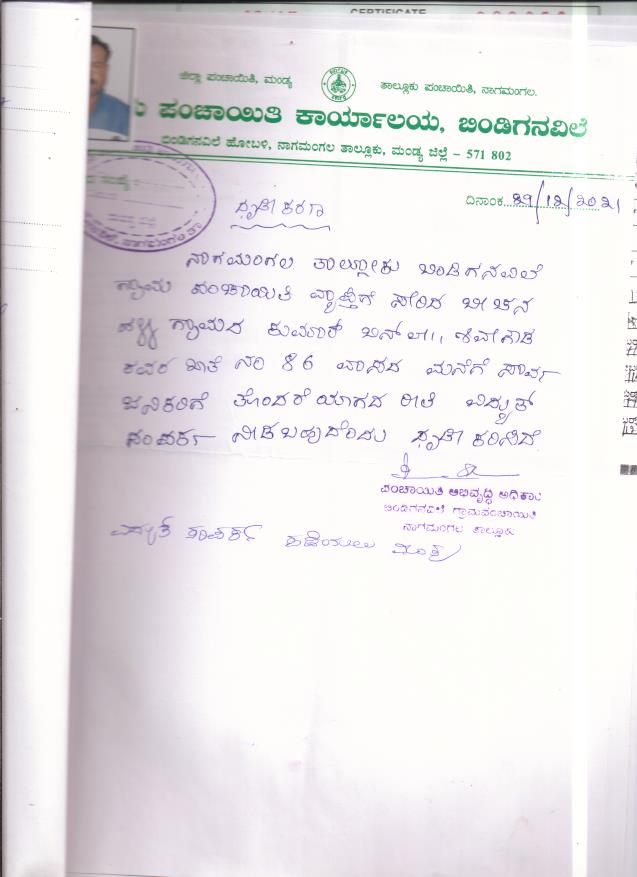 CERTIFICATE
ಜಿಲ್ಲಾ ಪಂಚಾಯಿತಿ, ಮಂಡ್ಯ
ತಾಲ್ಲೂಕು ಪಂಚಾಯಿತಿ, ನಾಗಮಂಗಲ.
ಪಂಚಾಯಿತಿ ಕಾರ್ಯಾಲಯ, ಬಿಂಡಿಗನವಿಲೆ
ಬಿಂಡಿಗನವಿಲೆ ಹೋಬಳಿ, ನಾಗಮಂಗಲ ತಾಲ್ಲೂಕು, ಮಂಡ್ಯ ಜಿಲ್ಲೆ – 571 802
ದಿನಾಂಕ 29/12/2021
ಧೃಢೀಕರಣ
ನಾಗಮಂಗಲ ತಾಲ್ಲೋಕು ಬಿಂಡಿಗನವಿಲೆ
ಗ್ರಾಮ ಪಂಚಾಯಿತಿ ವ್ಯಾಪ್ತಿಗೆ ಸೇರಿದ ಬೀಚನ
ಹಳ್ಳಿ ಗ್ರಾಮದ ಕುಮಾರ್ ಬಿನ್ ಶಿವೇಗೌಡ
ರವರ ಖಾತೆ ನಂ 86 ವಾಸದ ಮನೆಗೆ ಸಾರ್ವ
ಜನಿಕರಿಗೆ ತೊಂದರೆಯಾಗದ ರೀತಿ ವಿದ್ಯುತ್
ಸಂಪರ್ಕ ನೀಡಬಹುದೆಂದು ಧೃಢೀಕರಿಸಿದೆ
ಪಂಚಾಯಿತಿ ಅಭಿವೃದ್ಧಿ ಅಧಿಕಾರಿ
ಬಿಂಡಿಗನವಿಲೆ ಗ್ರಾಮಪಂಚಾಯಿತಿ
ನಾಗಮಂಗಲ ತಾಲ್ಲೂಕು
ವಿದ್ಯುತ್ ಸಂಪರ್ಕ ಪಡೆಯಲು ಮಾತ್ರ